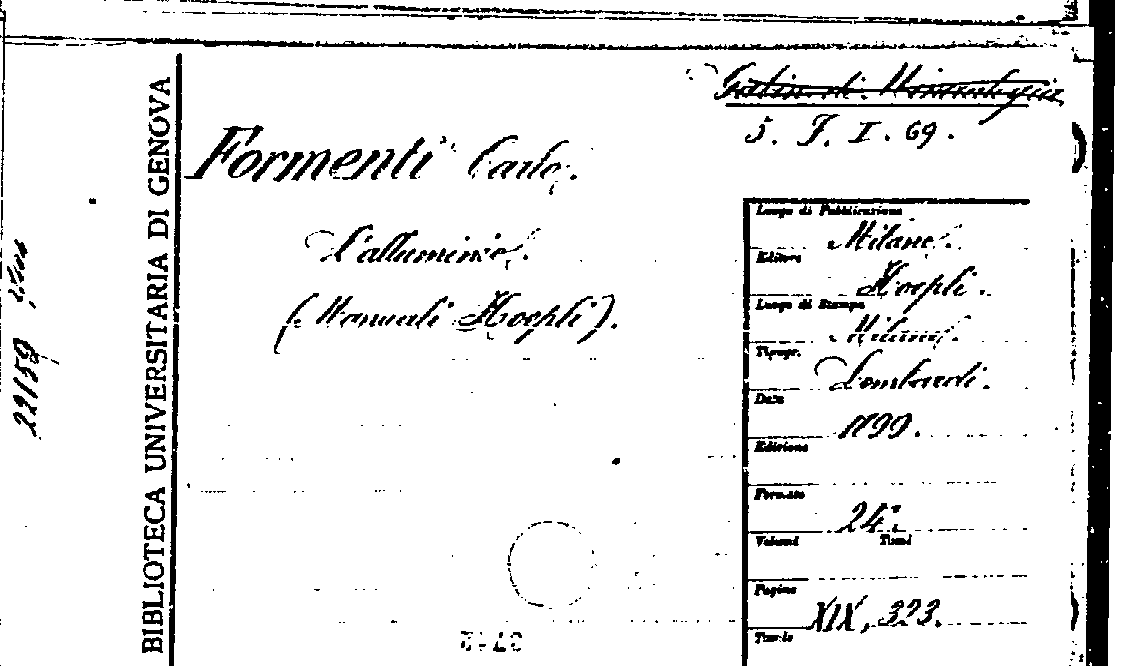 Gabin. di Mineralogia
5. F. I. 69.
Formenti Carlo.
L'alluminio.
(Manuali Hoepli).
BIBLIOTECA UNIVERSITARIA DI GENOVA
22159
Luogo di Pubblicazione
Milano.
Editore
Hoepli.
Luogo di Stampa
Milano.
Tipogr.
Lombardi.
Data
1899.
Edizione
Formato
24°.
Volumi Tomi
Pagine
XIX, 323.
Tavole